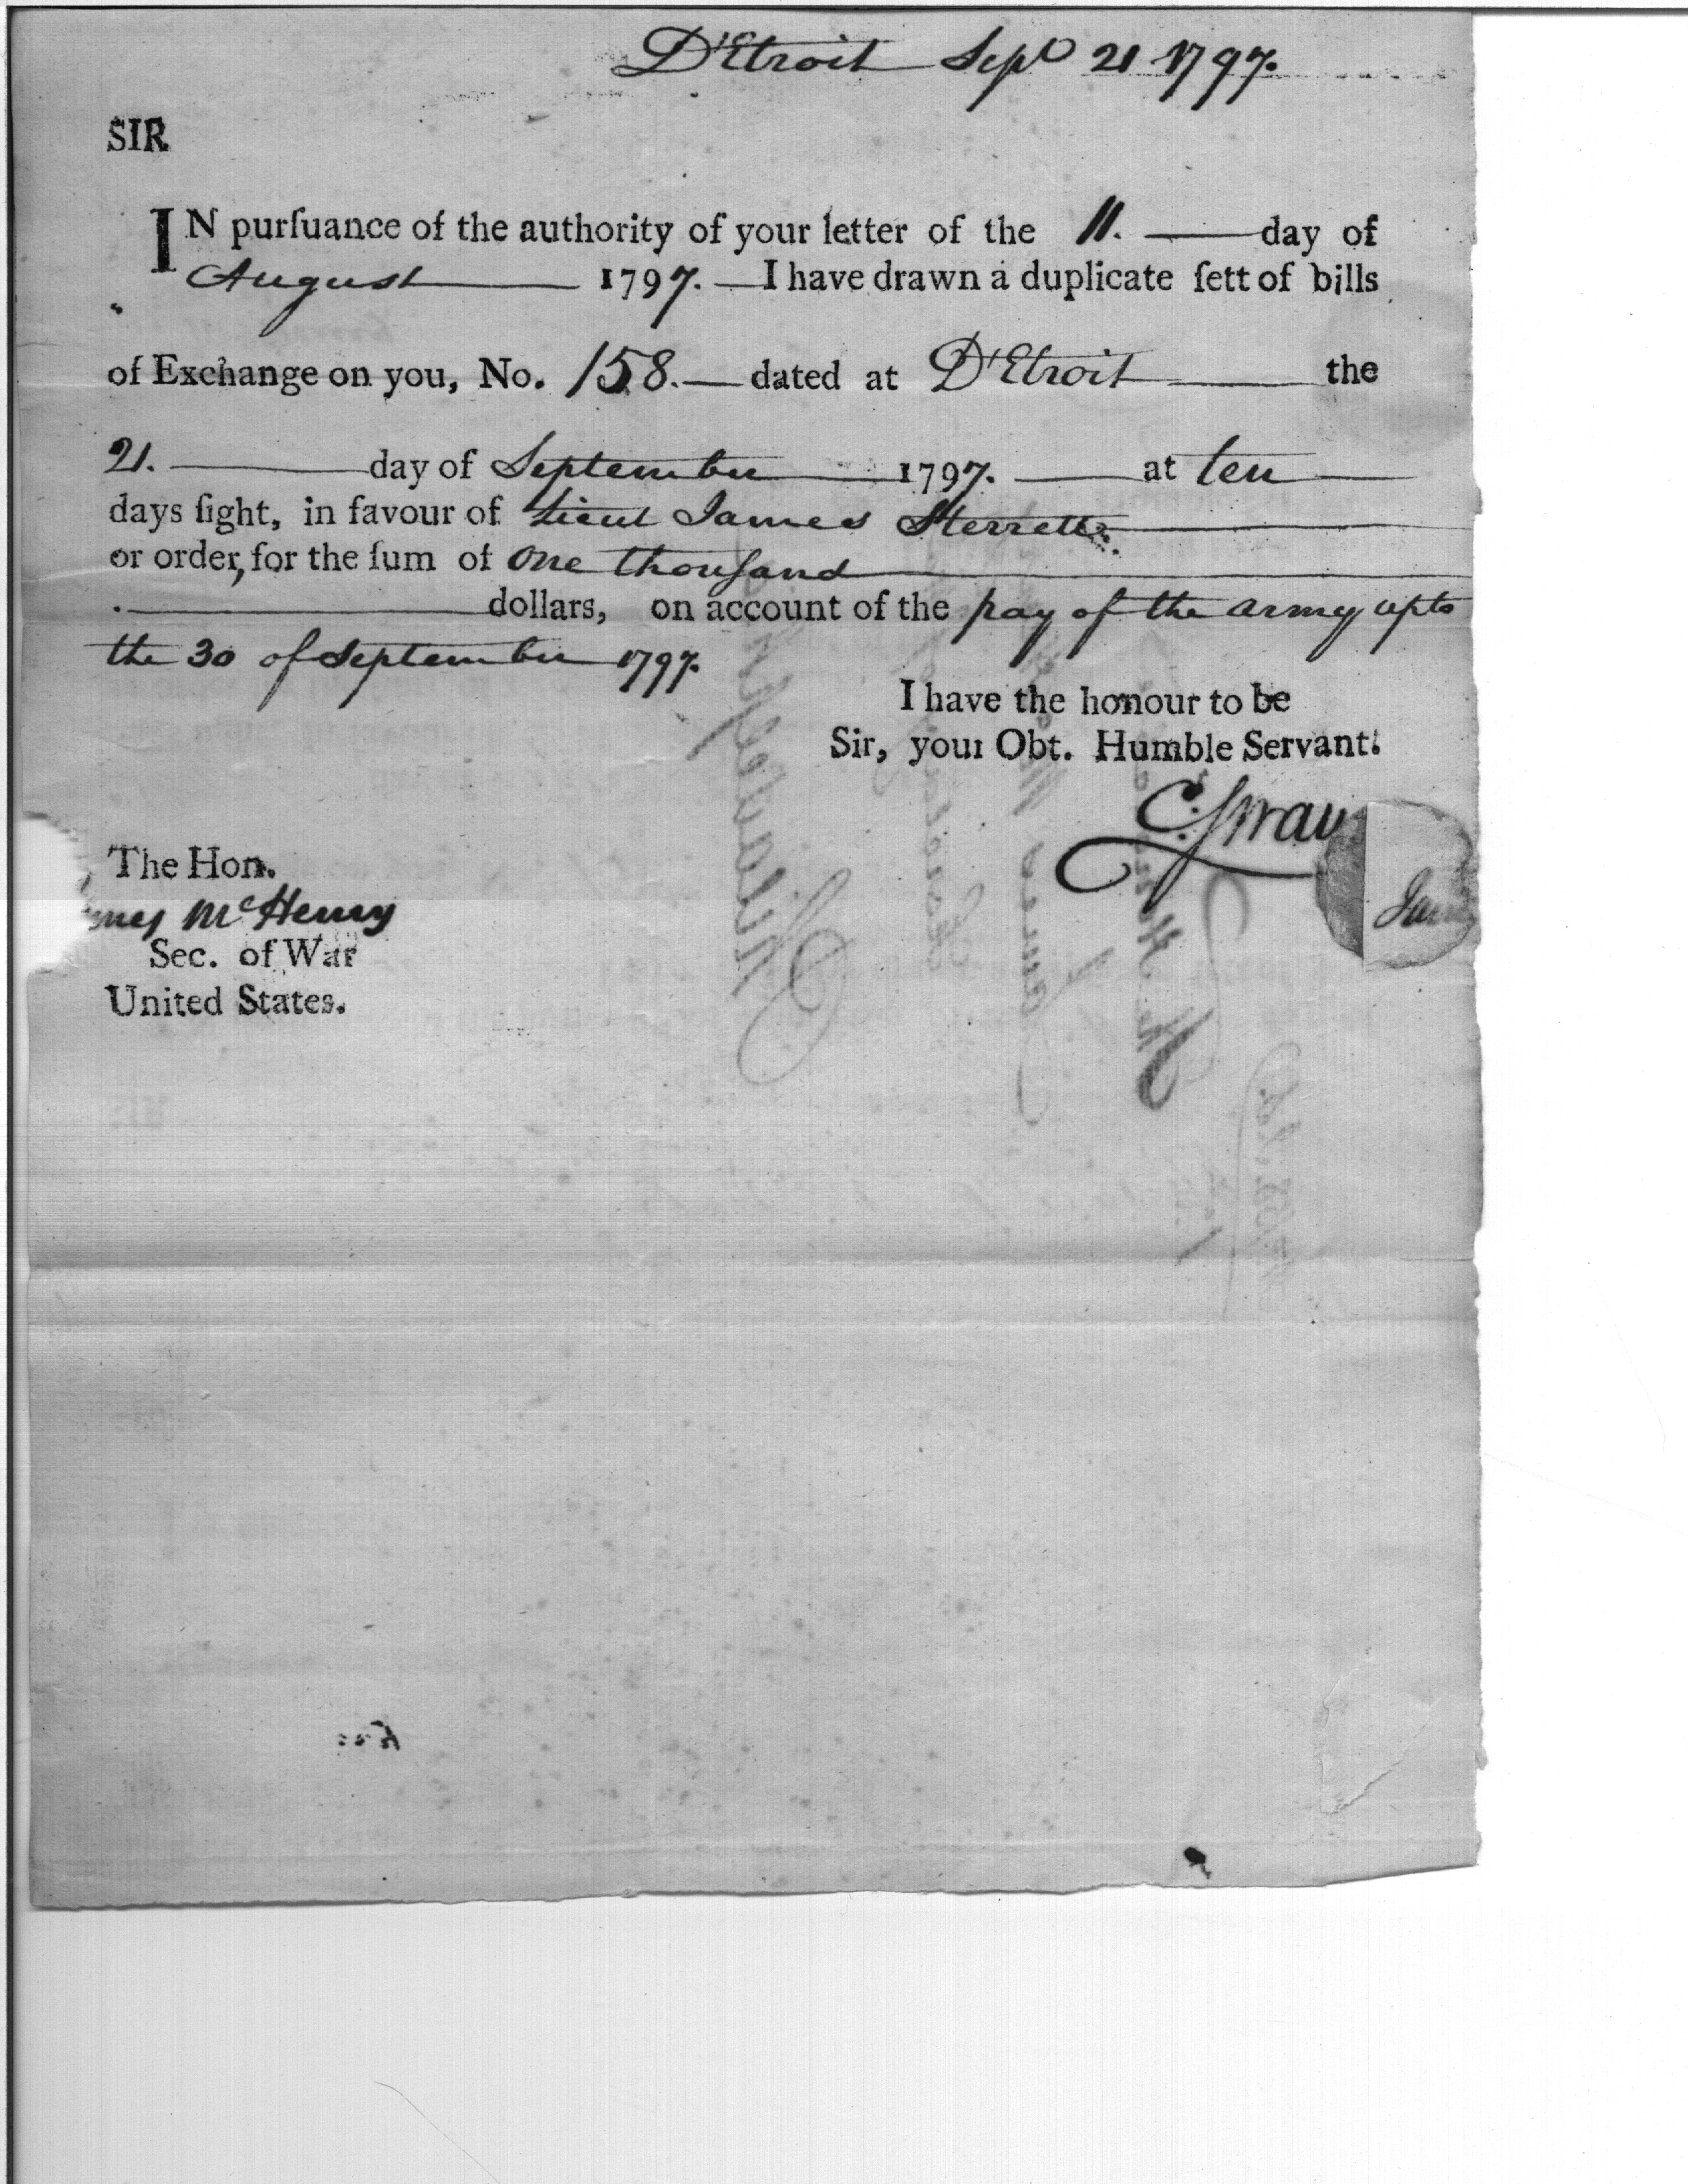 D'Etroit Sept 21 1797.
SIR
IN purſuance of the authority of your letter of the 11. day of
August 1797. I have drawn a duplicate ſett of bills
of Exchange on you, No. 158. dated at D'Etroit the
21. day of September 1797. at ten
days ſight, in favour of Lieut James Sterrett
or order, for the ſum of One thouſand
dollars, on account of the pay of the army upto
the 30 of September 1797.
I have the honour to be
Sir, your Obt. Humble Servant.
C. Swan
Jam
The Hon.
mes McHenry
Sec. of War
United States.